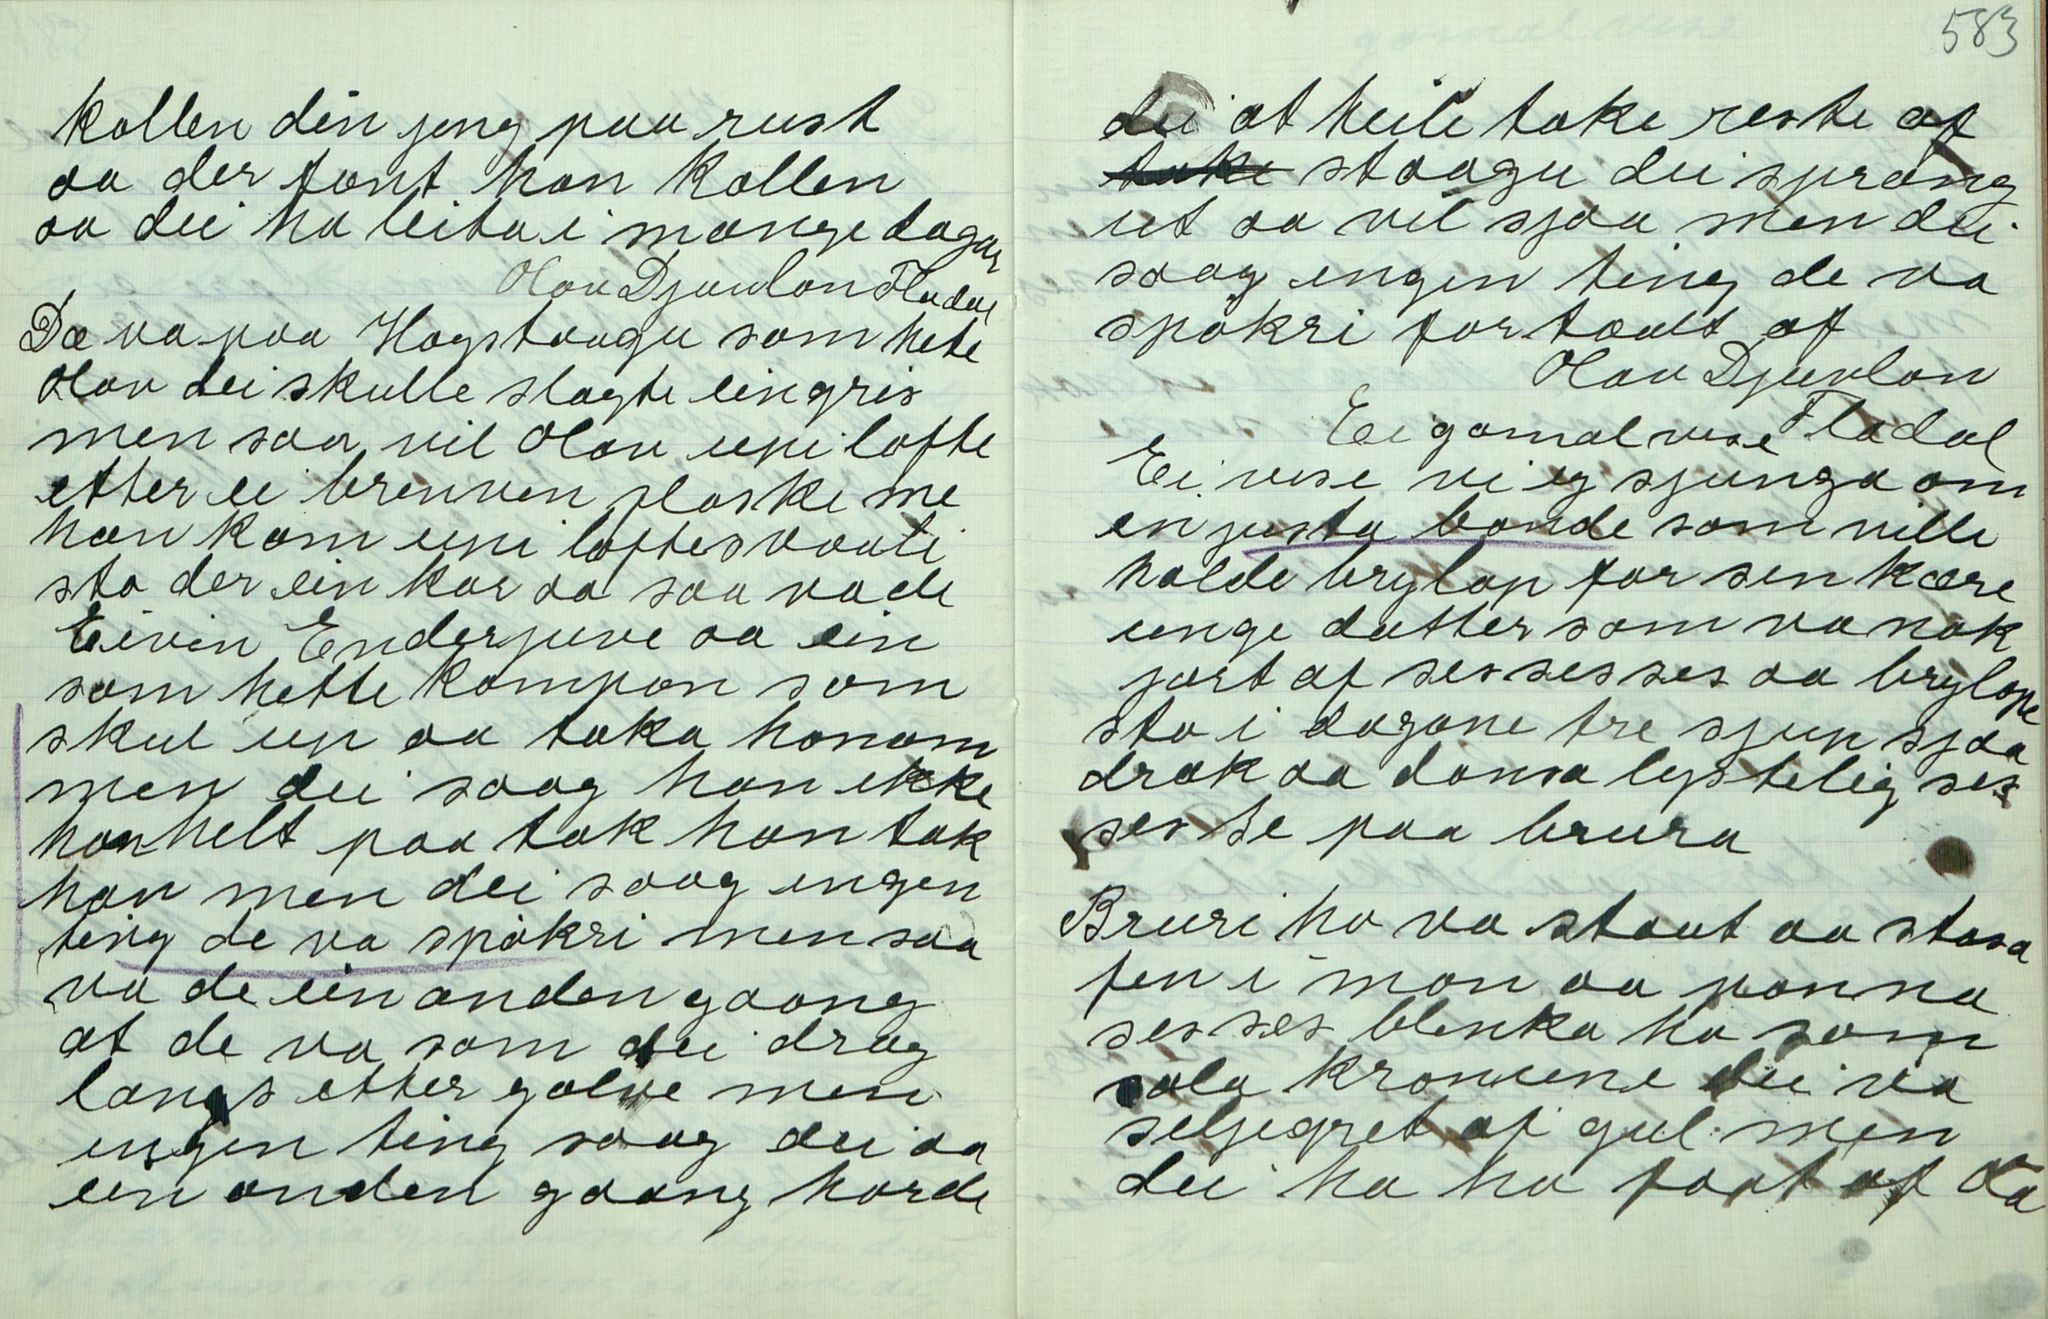 kollen din jeng paa rust
aa der fant han kollen
aa dei ha leita i mange dagar
Olav Djuvlon Fladal
Dæ va paa Hogstoogu som hete
Olav dei skulle slagte ein gris
men saa vil Olav upi lofte
etter ei brenven flaske me
han kom upi loftesvaali
sto der ein kar aa saa va de
Eivin Enderjuve aa ein
som hette Kompon som
skul up aa taka honom
men dei saag han ikke
han helt paa tok han tok
han men dei saag ingen
ting de va spökri men saa
va de ein anden gaang
at de va som dei drog
langs etter golve men
ingen ting saag dei aa
ein anden gaang horde
583
dei at heile toke reste af
toke stoogu dei sprang
ut aa vil sjaa men dei
saag engen ting de va
spökri fortaalt af
Olav Djuvlon
Fladal
Ei gomal vise
Ei vise vi eg sjunga om
en justa bonde som ville
holde brylop for sen kære
unge datter som va nok
jort af ses ses ses aa brylope
sto i dagane tre sjup sjaa
drak aa dansa lystelig ses
ses se paa brura
Bruri ho va staut aa stasa
fen i mon aa panna
ses ses blenka ho som
sola kronune dei va
seljegret af gul men
dei ha ho faat af aa